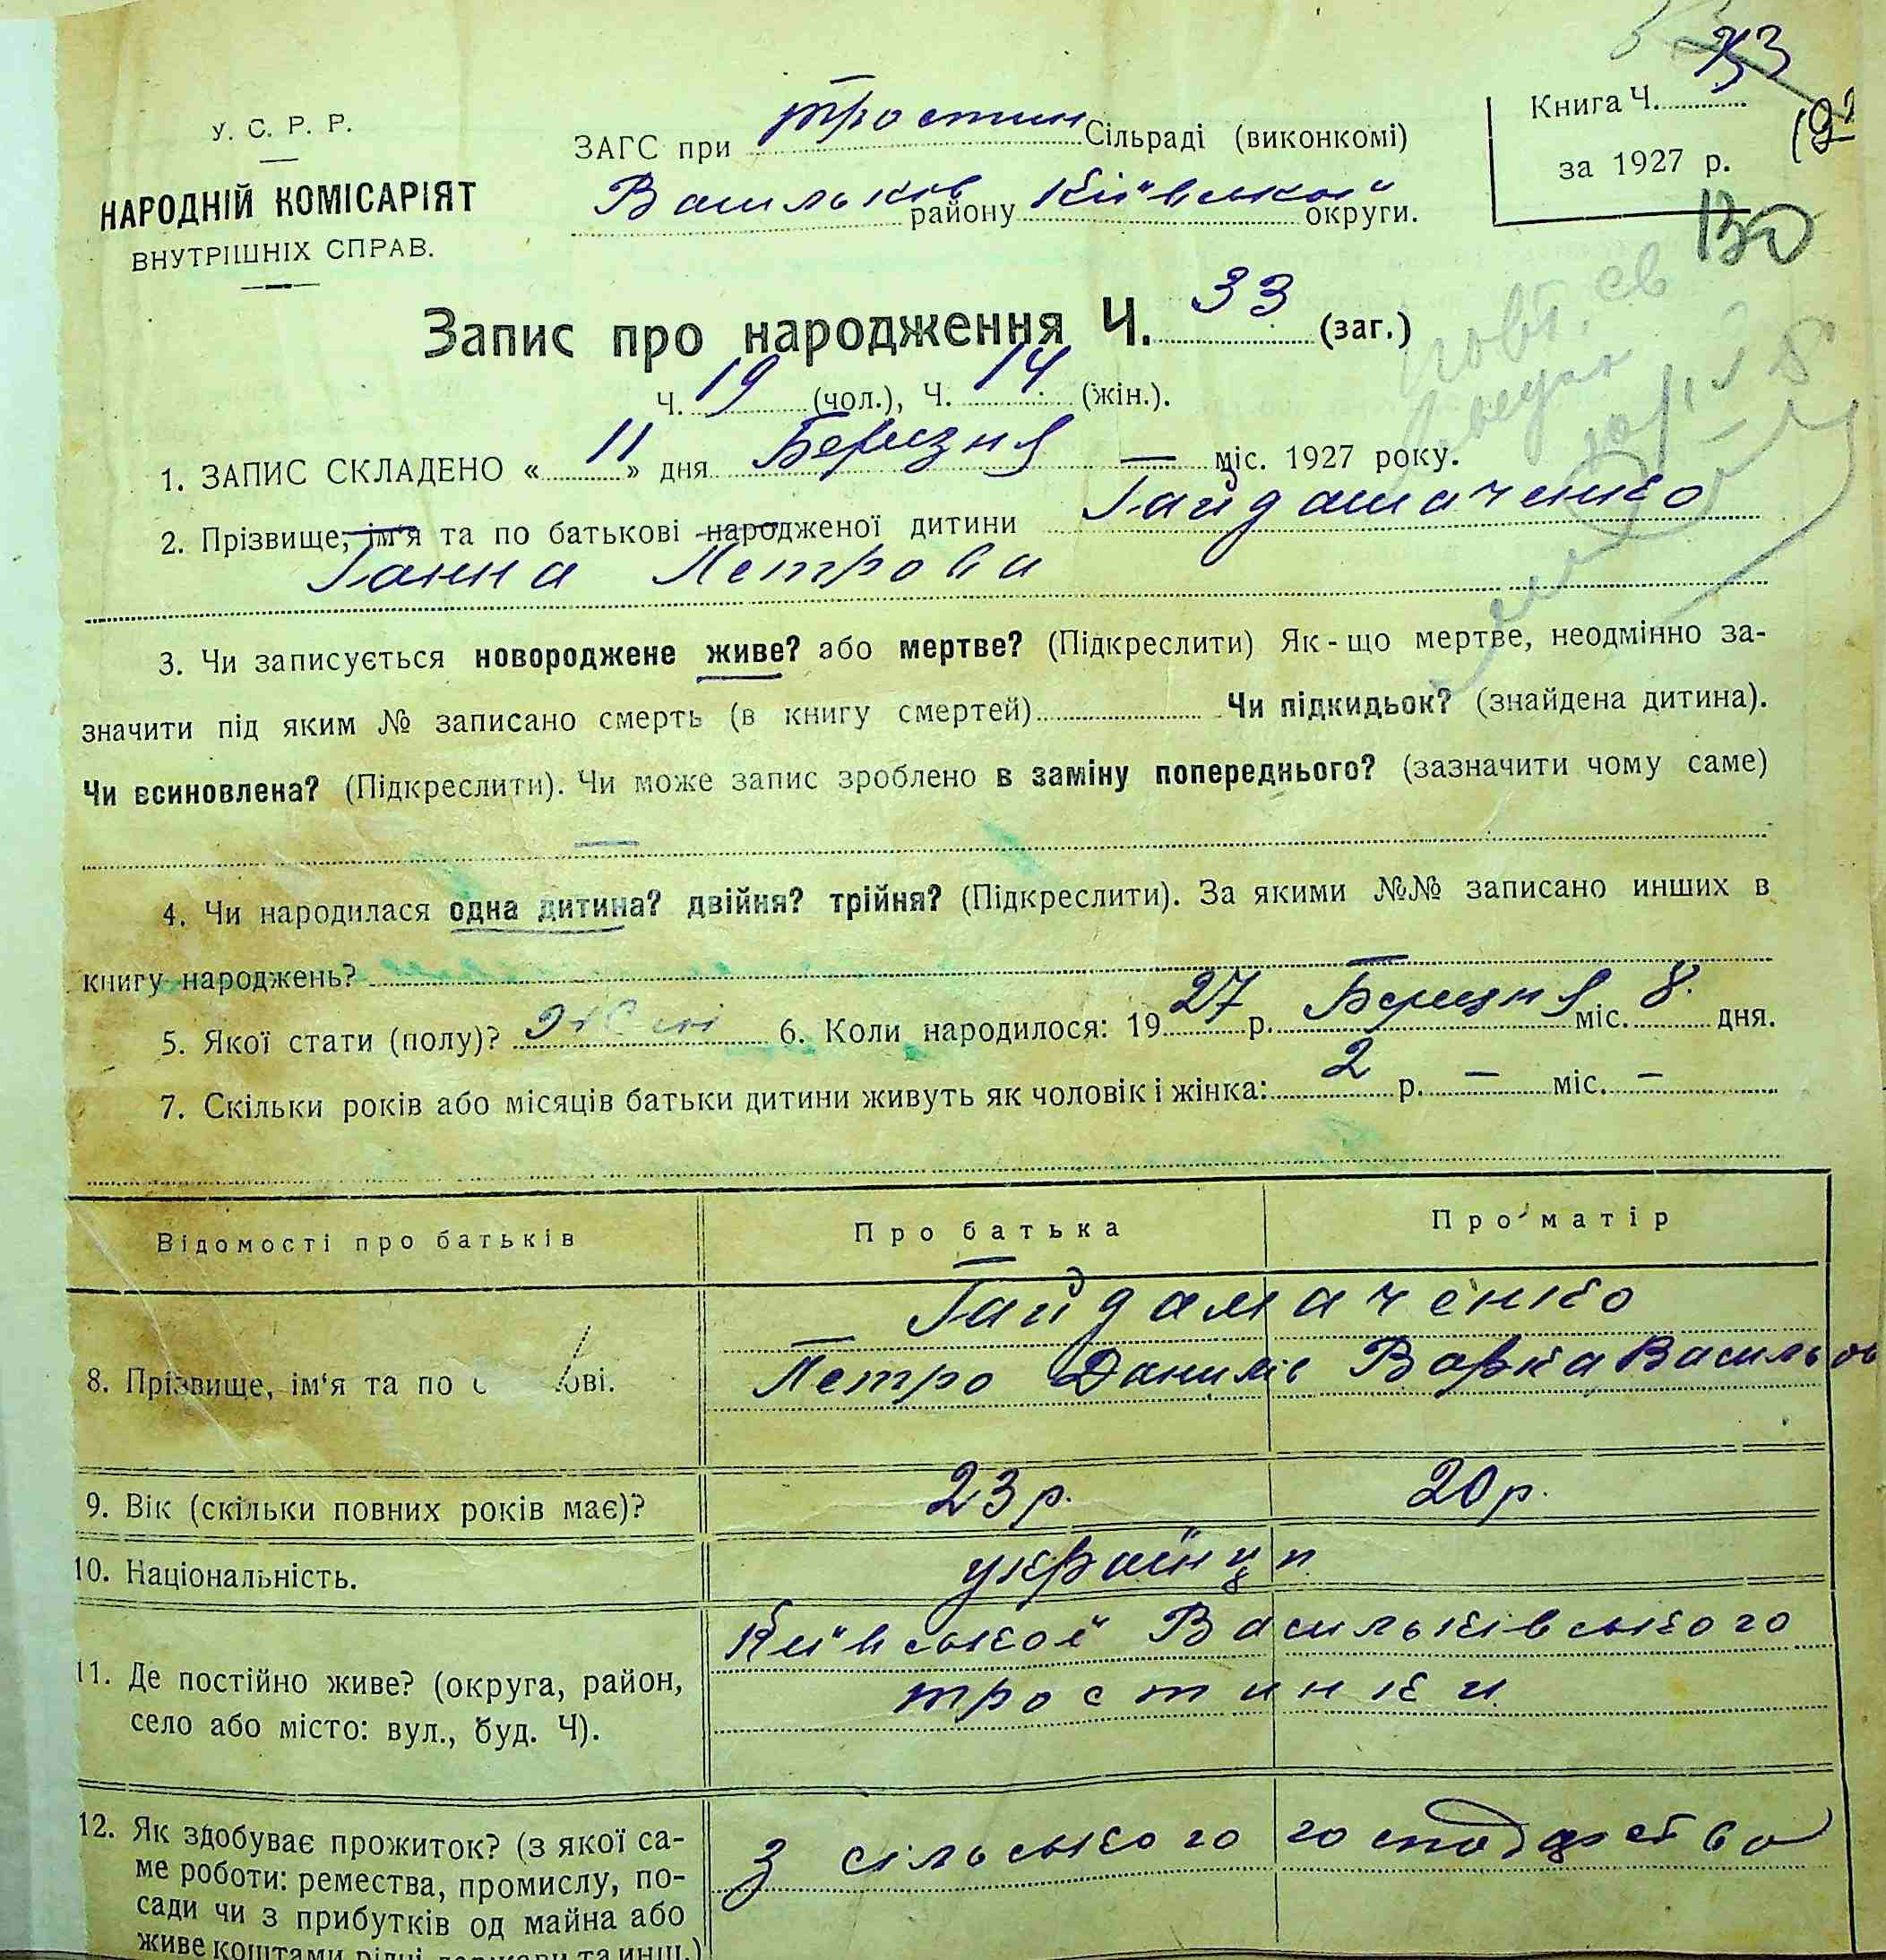 33
У. С. Р. Р.
НАРОДНІЙ КОМІСАРІЯТ
ВНУТРІШНІХ СПРАВ.
ЗАГС при Тростин Сільраді (виконкомі)
Васильків району Київської округи.
Книга Ч.
за 1927 р.
130
Запис про народження Ч. 33 (заг.)
Ч. 19 (чол.), Ч. 14 (жін.).
1. ЗАПИС СКЛАДЕНО « 11 » дня Березня — міс. 1927 року.
2. Прізвище, ім'я та по батькові народженої дитини Гайдамаченко
Ганна Петрова
3. Чи записується новороджене живе? або мертве? (Підкреслити) Як-що мертве, неодмінно за-
значити під яким № записано смерть (в книгу смертей) Чи підкидьок? (знайдена дитина).
Чи всиновлена? (Підкреслити). Чи може запис зроблено в заміну попереднього? (зазначити чому саме)
—
4. Чи народилася одна дитина? двійня? трійня? (Підкреслити). За якими №№ записано инших в
книгу народжень? —
5. Якої стати (полу)? жіні 6. Коли народилося: 1927 р. Березня міс. 8. дня.
7. Скільки років або місяців батьки дитини живуть як чоловік і жінка: 2 р. — міс. —
Відомості про батьків Про батька Про матір
Гайдамаченко
8. Прізвище, ім'я та по ові. Петро Данилів Варка Васильов
9. Вік (скільки повних років має)? 23 р. 20 р.
10. Національність. українци
11. Де постійно живе? (округа, район,
село або місто: вул., буд. Ч).
Київської Васильківського
тростинки
12. Як здобуває прожиток? (з якої са-
ме роботи: ремества, промислу, по-
сади чи з прибутків од майна або
живе коштами рідні, держави та инш.)
З сільського господарства